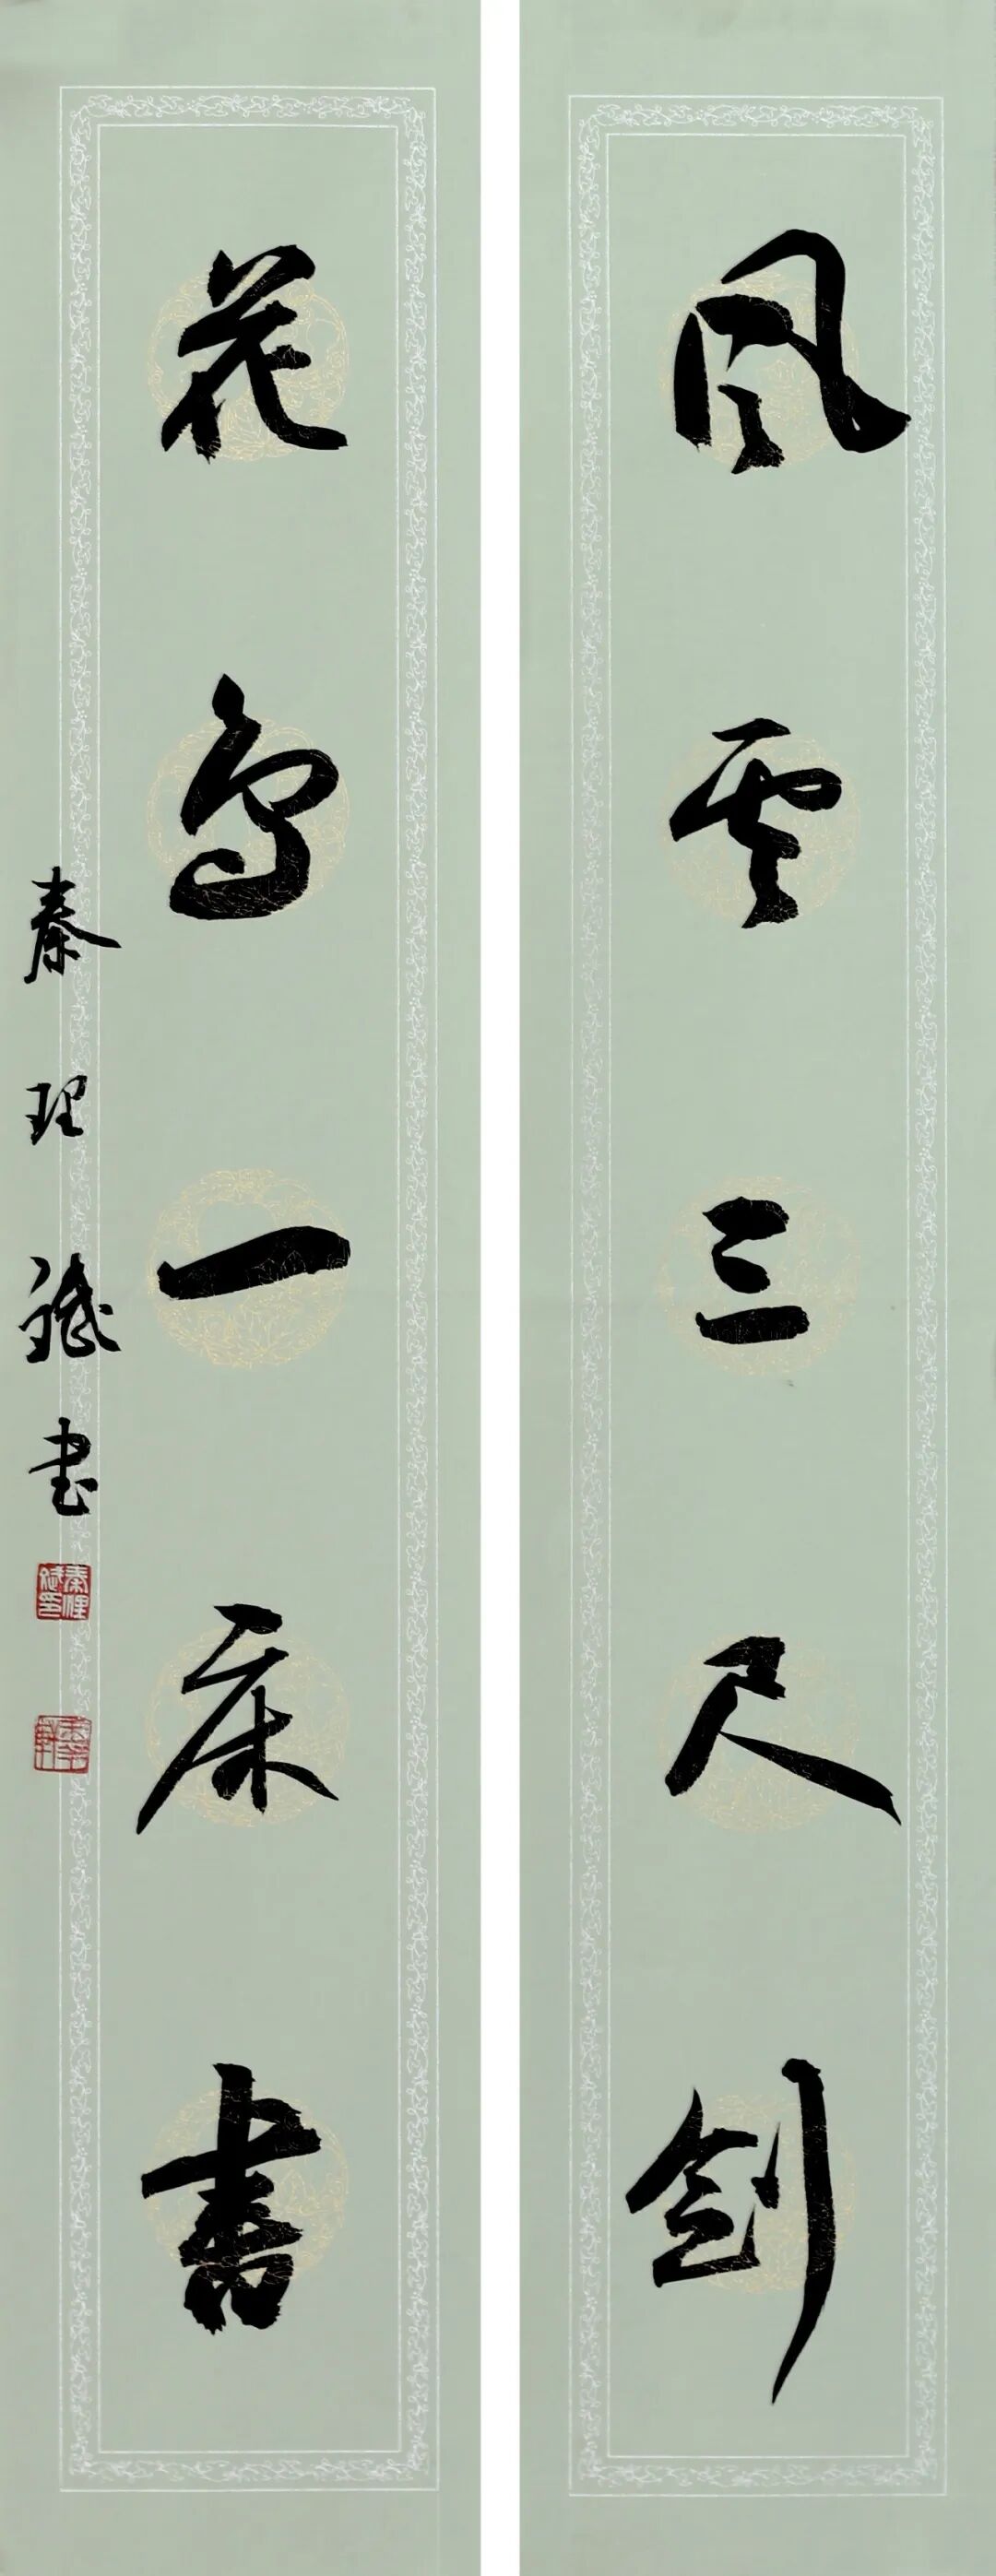 風雲三尺劍
花鳥一床書
秦理斌書